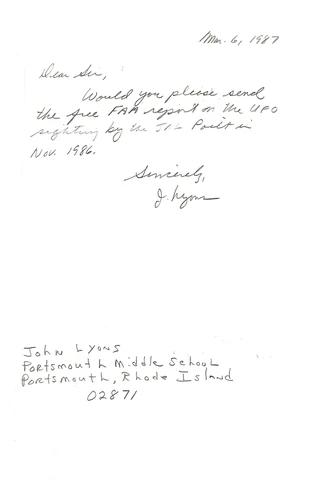 Mar. 6, 1987
Dear Sir,
Would you please send
the free FAA report on the UFO
sighting by the in
Nov. 1986.
Sincerely,
J. Lyons
John Lyons
Portsmouth Middle School
Portsmouth, Rhode Island
02871